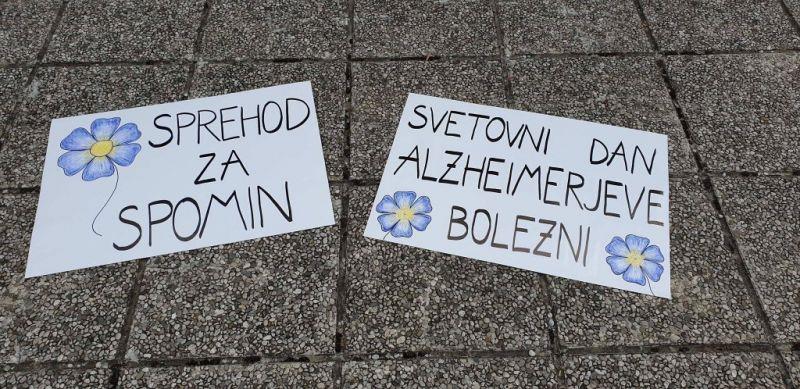 SPREHOD
ZA
SPOMIN
SVETOVNI DAN
ALZHEIMERJEVE
BOLEZNI